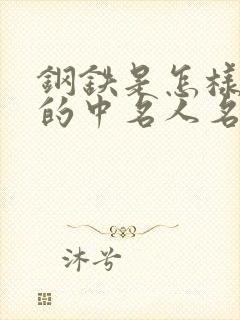 鋼鉄是怎樣
的中名人名
沐兮